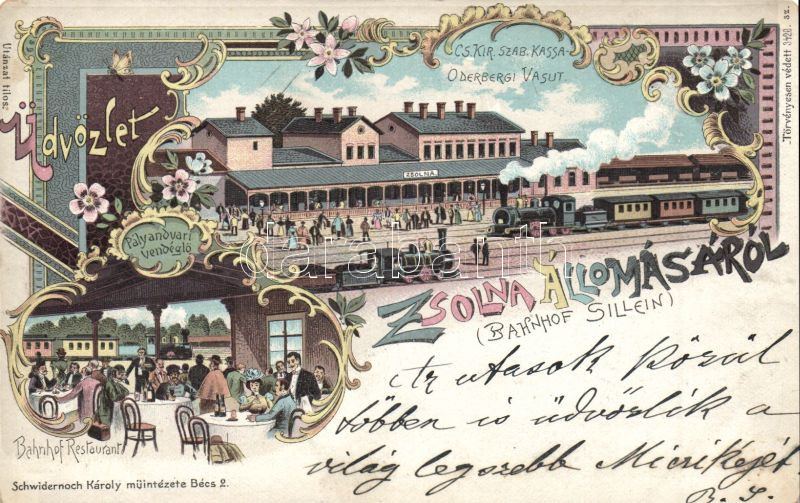 Utánzat tilos:
Üdvözlet
Cs. Kir. szab. Kassa-
Oderbergi Vasut.
Törvényesen védett 3420. sz.
ZSOLNA
Pályaudvari
vendéglő
darabanth
Zsolna Állomásáról
(Bahnhof Sillein)
Az utasok közül
többen is üdvözlik a
világ legszebb Miczikéjét
Bahnhof Restaurant
Schwidernoch Károly müintézete Bécs 2.